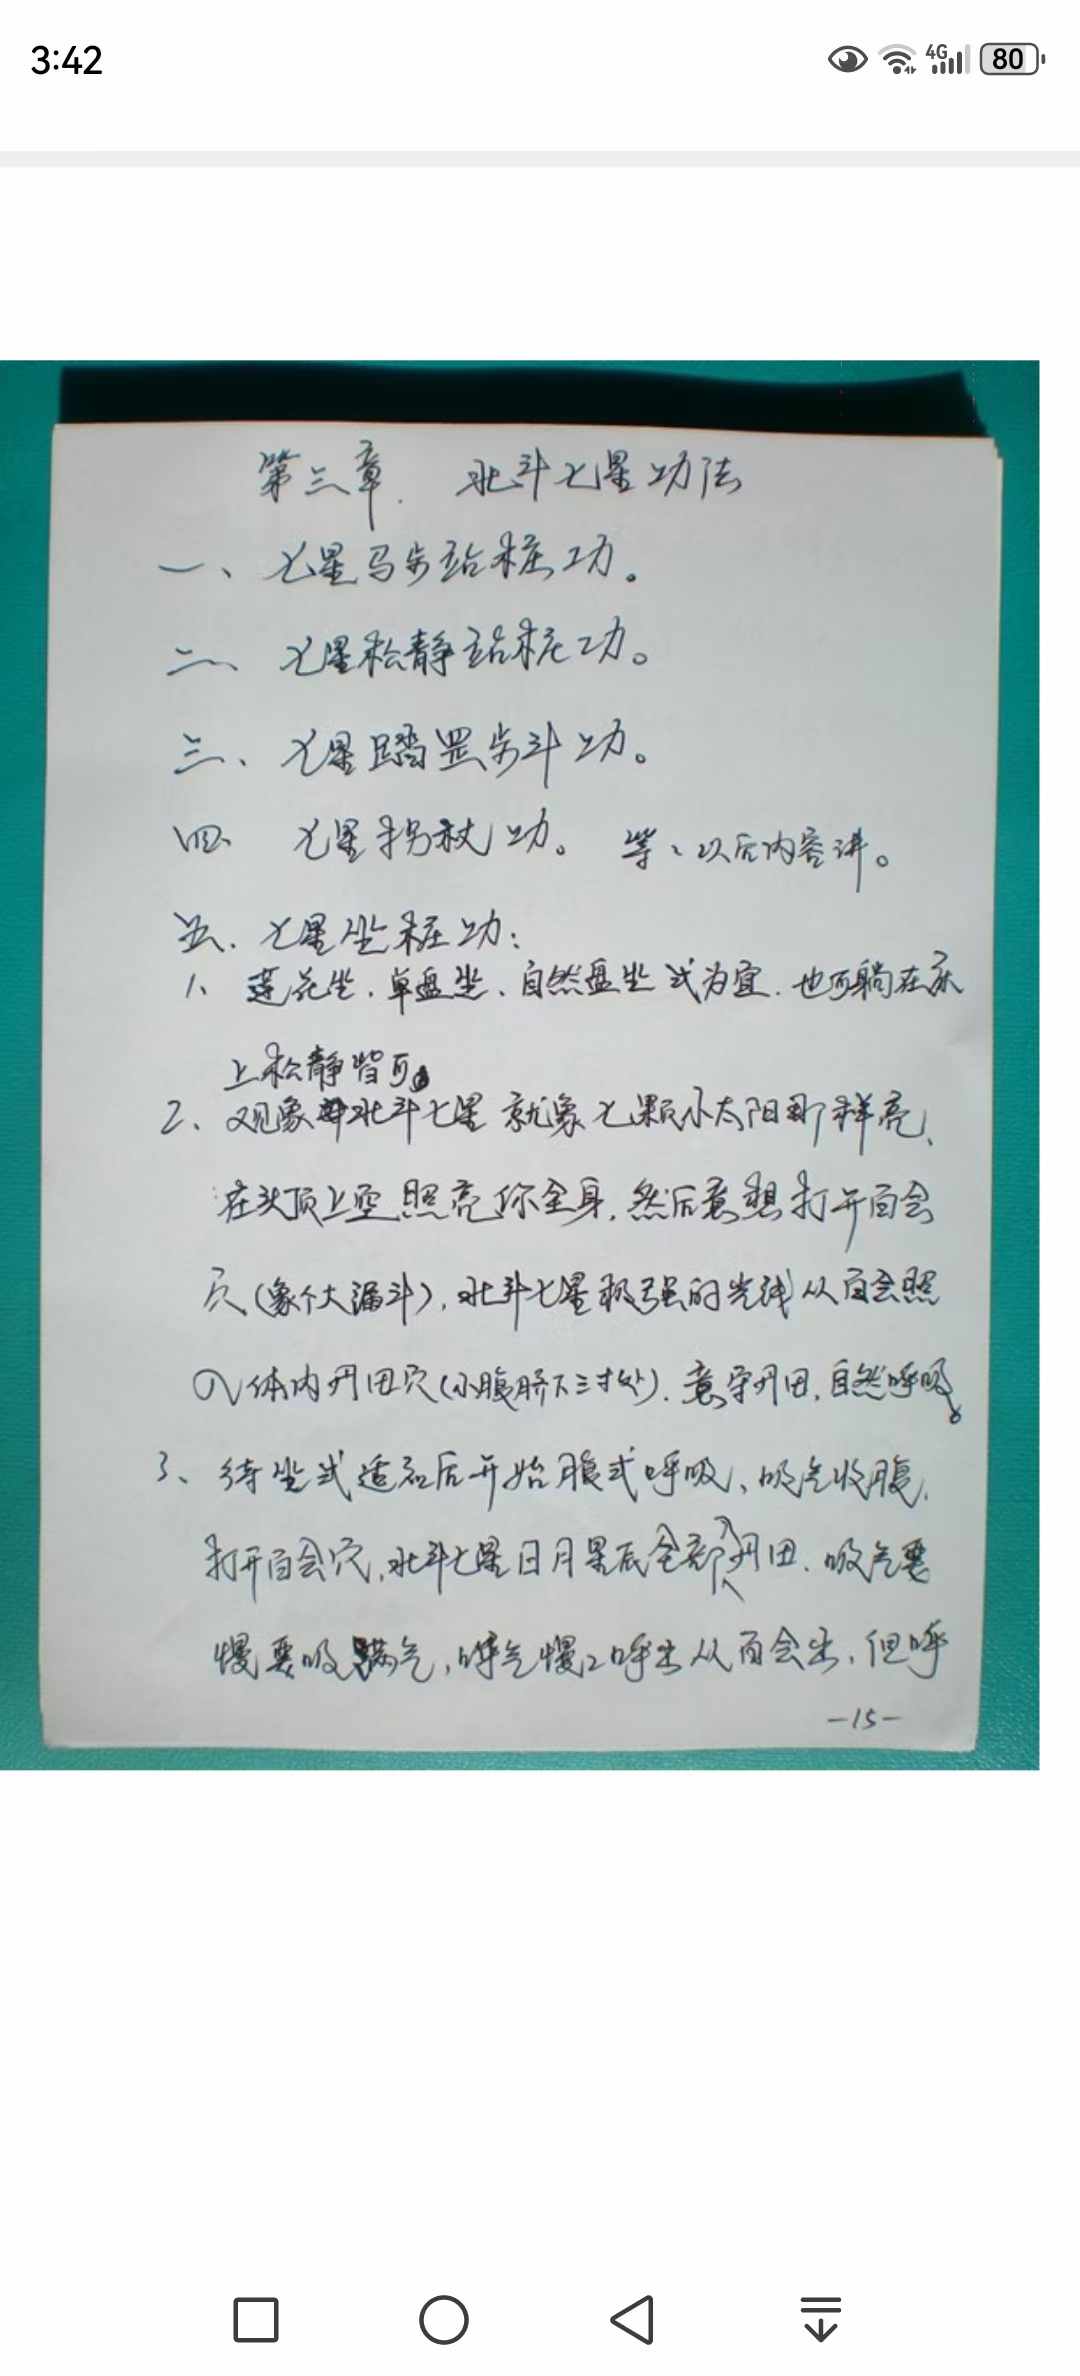 3:42
4G
80
第三章. 北斗七星功法
一、七星马步站桩功。
二、七星松静站桩功。
三、七星踏罡步斗功。
四、七星拐杖功。等、以后内容讲。
五、七星坐桩功：
1、莲花坐、单盘坐、自然盘坐式为宜.也可躺在床
上松静皆可。
2、观象北斗七星就象七颗小太阳那样亮、
在头顶上空照亮你全身.然后意想打开百会
穴(象个大漏斗),北斗七星极强的光线从百会照
入体内丹田穴(小腹脐下三寸处).意守丹田,自然呼吸。
3、待坐式适应后开始腹式呼吸、吸气收腹.
打开百会穴,北斗七星日月星辰全部入丹田.吸气要
慢要吸满气,呼气慢慢呼出从百会出、但呼
-15-